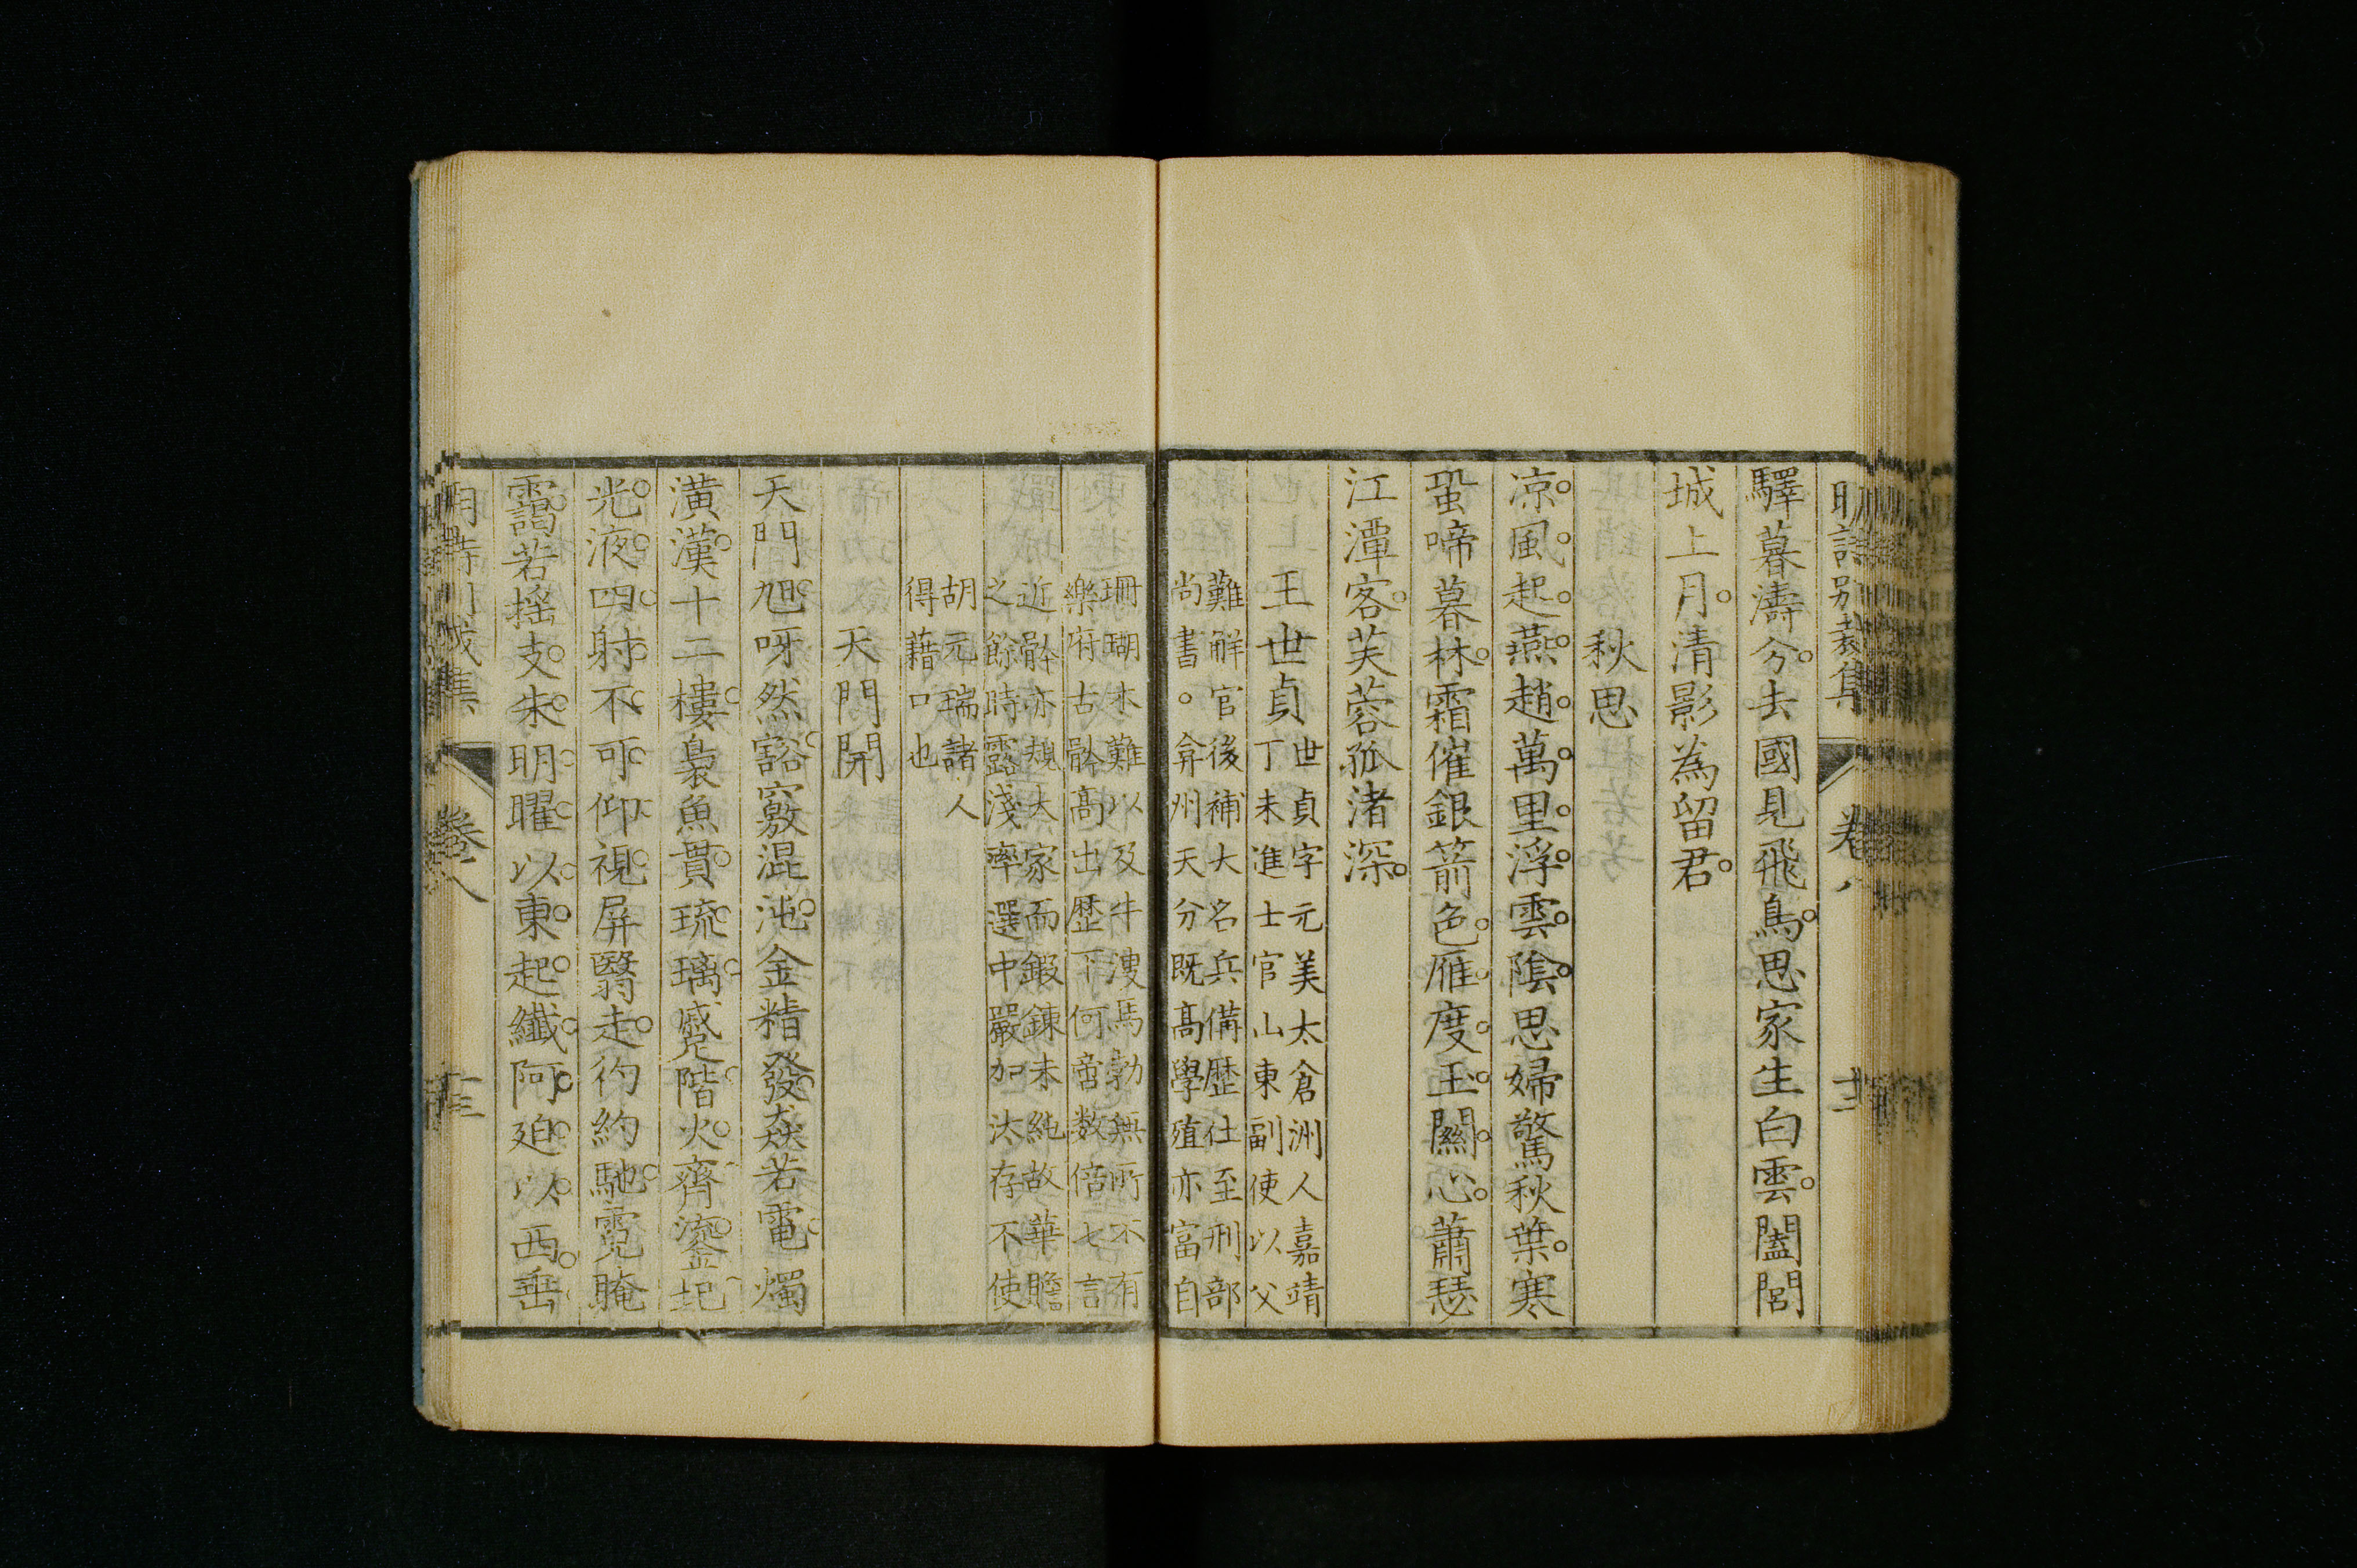 明詩別裁集 卷八 十二
驛暮濤分去國見飛鳥思家生白雲闔閭
城上月清影為留君
秋思
凉風起燕趙萬里浮雲陰思婦驚秋葉寒
蛩啼暮林霜催銀箭色雁度玉關心蕭瑟
江潭客芙蓉孤渚深
王世貞
世貞字元美太倉洲人嘉靖
丁未進士官山東副使以父
難解官後補大名兵備歷仕至刑部
尚書。弇州天分既高學殖亦富自
珊瑚木難以及牛溲馬勃無所不有
樂府古骵高出歷下何啻数倍七言
近骵亦規大家而鍛鍊未純故華贍
之餘時露淺率選中嚴加汰存不使
胡元瑞諸人
得藉口也
天門開
天門旭呀然豁竅混沌金精發猋若電燭
潢漢十二樓裊魚貫琉璃甃階火齊瀅圯
光液四射不可仰視屏翳走彴約馳霓腌
靄若揺支朱明曜以東起纖阿廹以西乗
明詩別裁集 卷八 十三